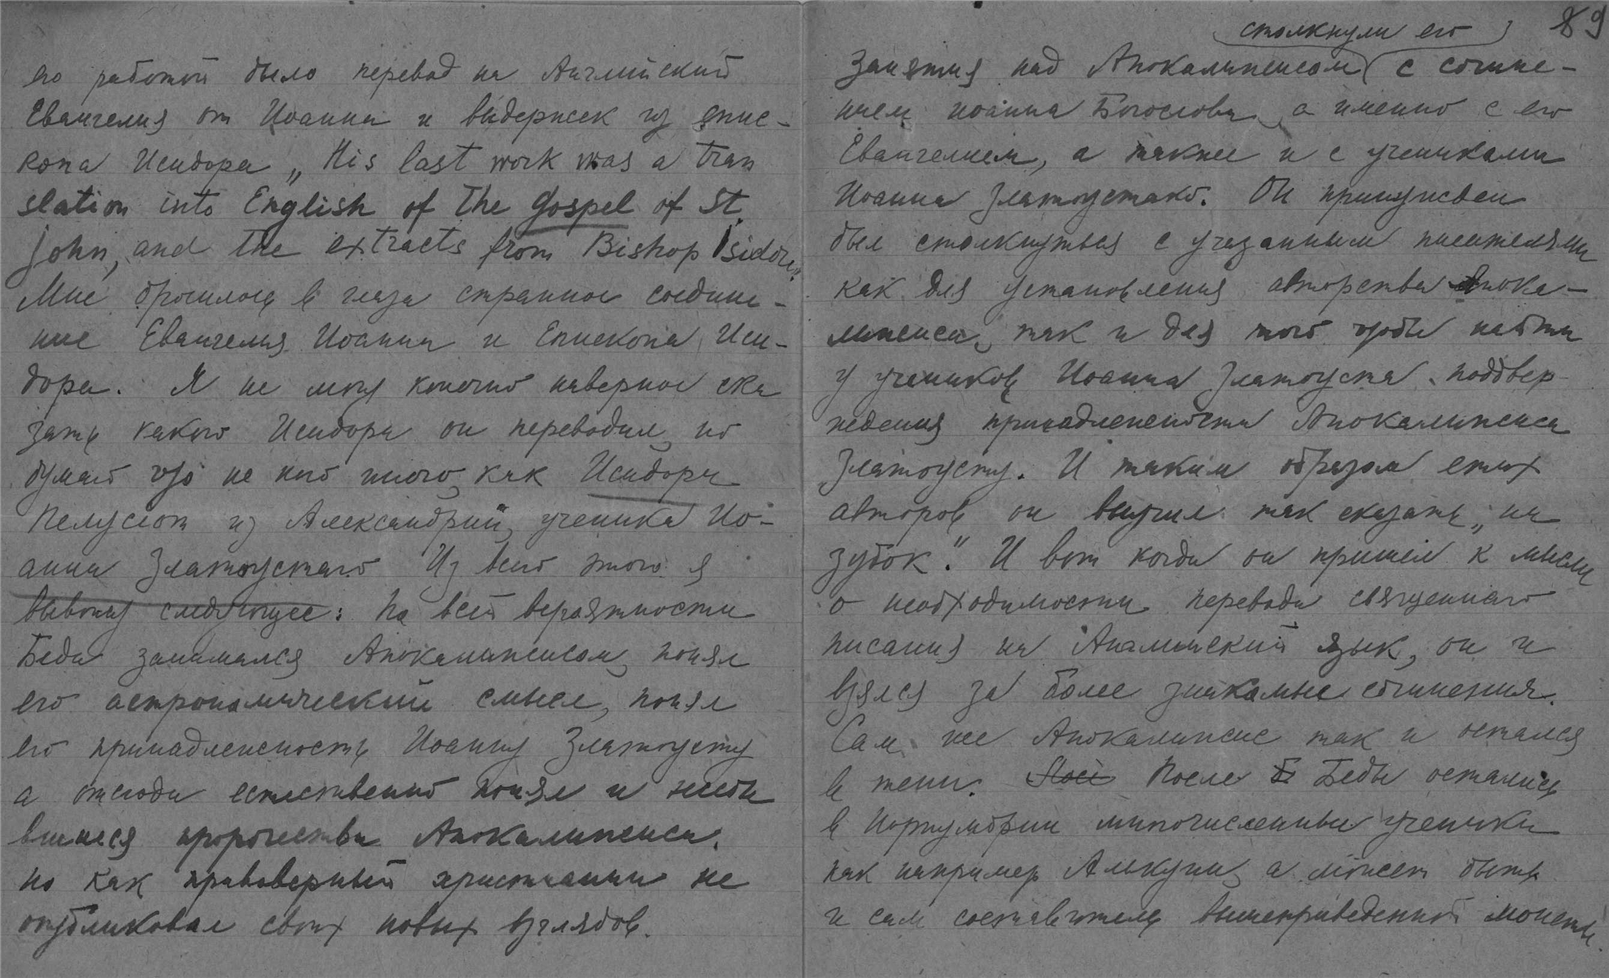 его работой было перевод на Английский
Евангелия от Иоанна и выдержек из епис-
копа Исидора „His last work was a tran
slation into English of the Gospel of St.
John, and the extracts from Bishop Isidore".
Мне бросилось в глаза странное соедине-
ние Евангелия Иоанна и Епископа Иси-
дора. Я не могу конечно наверное ска
зать какого Исидора он переводил, но
думаю что не кого иного, как Исидора
Пелусиот из Александрии, ученика Ио-
анна Златоустаго Из всего этого я
вывожу следующее: По всей вероятности
Беда занимался Апокалипсисом, понял
его астрономический смысл, понял
его принадлежность Иоанну Златоусту
а отсюда естественно понял и несбы
вшиеся пророчества Апокалипсиса.
но как правоверный христианин не
опубликовал своих новых взглядов.
89
столкнули его
Занятия над Апокалипсисом с сочине-
нием Иоанна Богослова, а именно с его
Евангелием, а также и с учениками
Иоанна Златоустаго. Он принужден
был столкнуться с указанными писателями
как для установления авторства Апока-
липсиса, так и для того чтобы найти
у учеников Иоанна Златоуста подтвер-
ждения принадлежности Апокалипсиса
Златоусту. И таким образом етих
авторов он выучил так сказать „на
зубок". И вот когда он пришел к мысли
о необходимости перевода священнаго
писания на Английский язык, он и
взялся за более знакомые сочинения.
Сам же Апокалипсис так и остался
в тени. После Беды остались
в Нортумбрии многочисленные ученики
как например Алькуин, а может быть
и сам составитель вышеприведенной монеты.